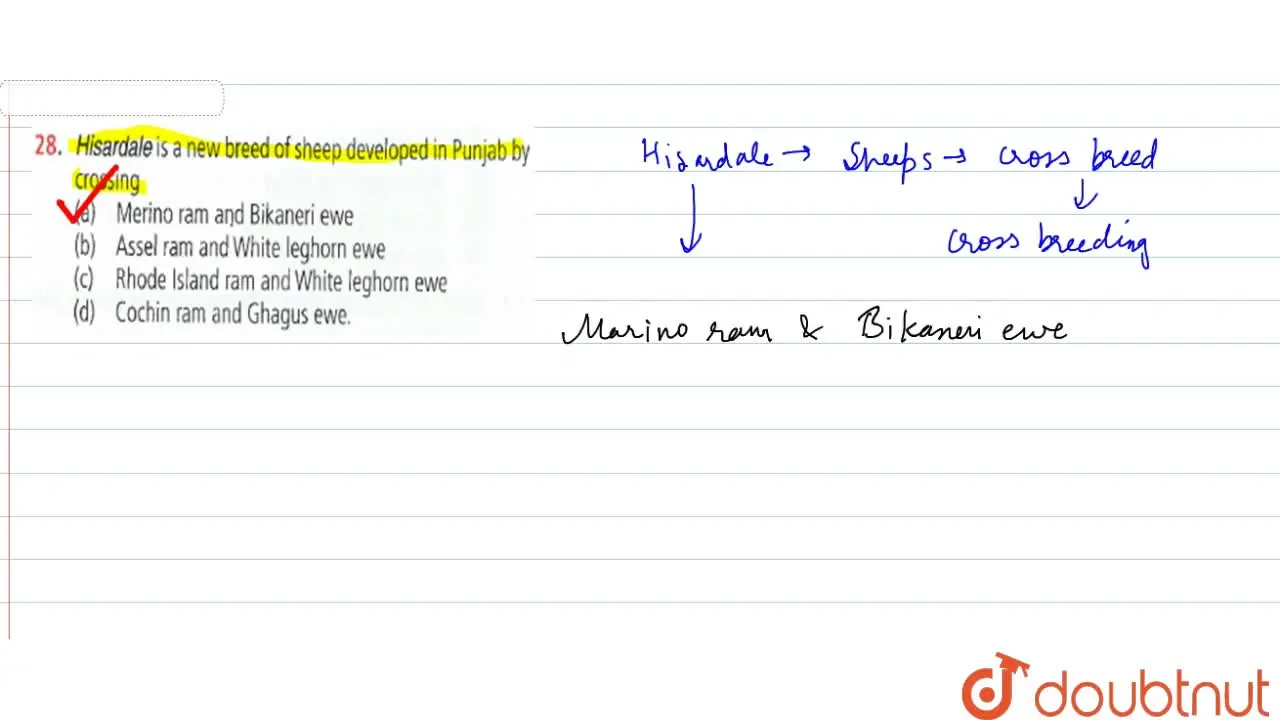 28. Hisardale is a new breed of sheep developed in Punjab by
crossing
(a) Merino ram and Bikaneri ewe
(b) Assel ram and White leghorn ewe
(c) Rhode Island ram and White leghorn ewe
(d) Cochin ram and Ghagus ewe.
Hisardale → Sheeps → cross breed
cross breeding
Marino ram & Bikaneri ewe
doubtnut